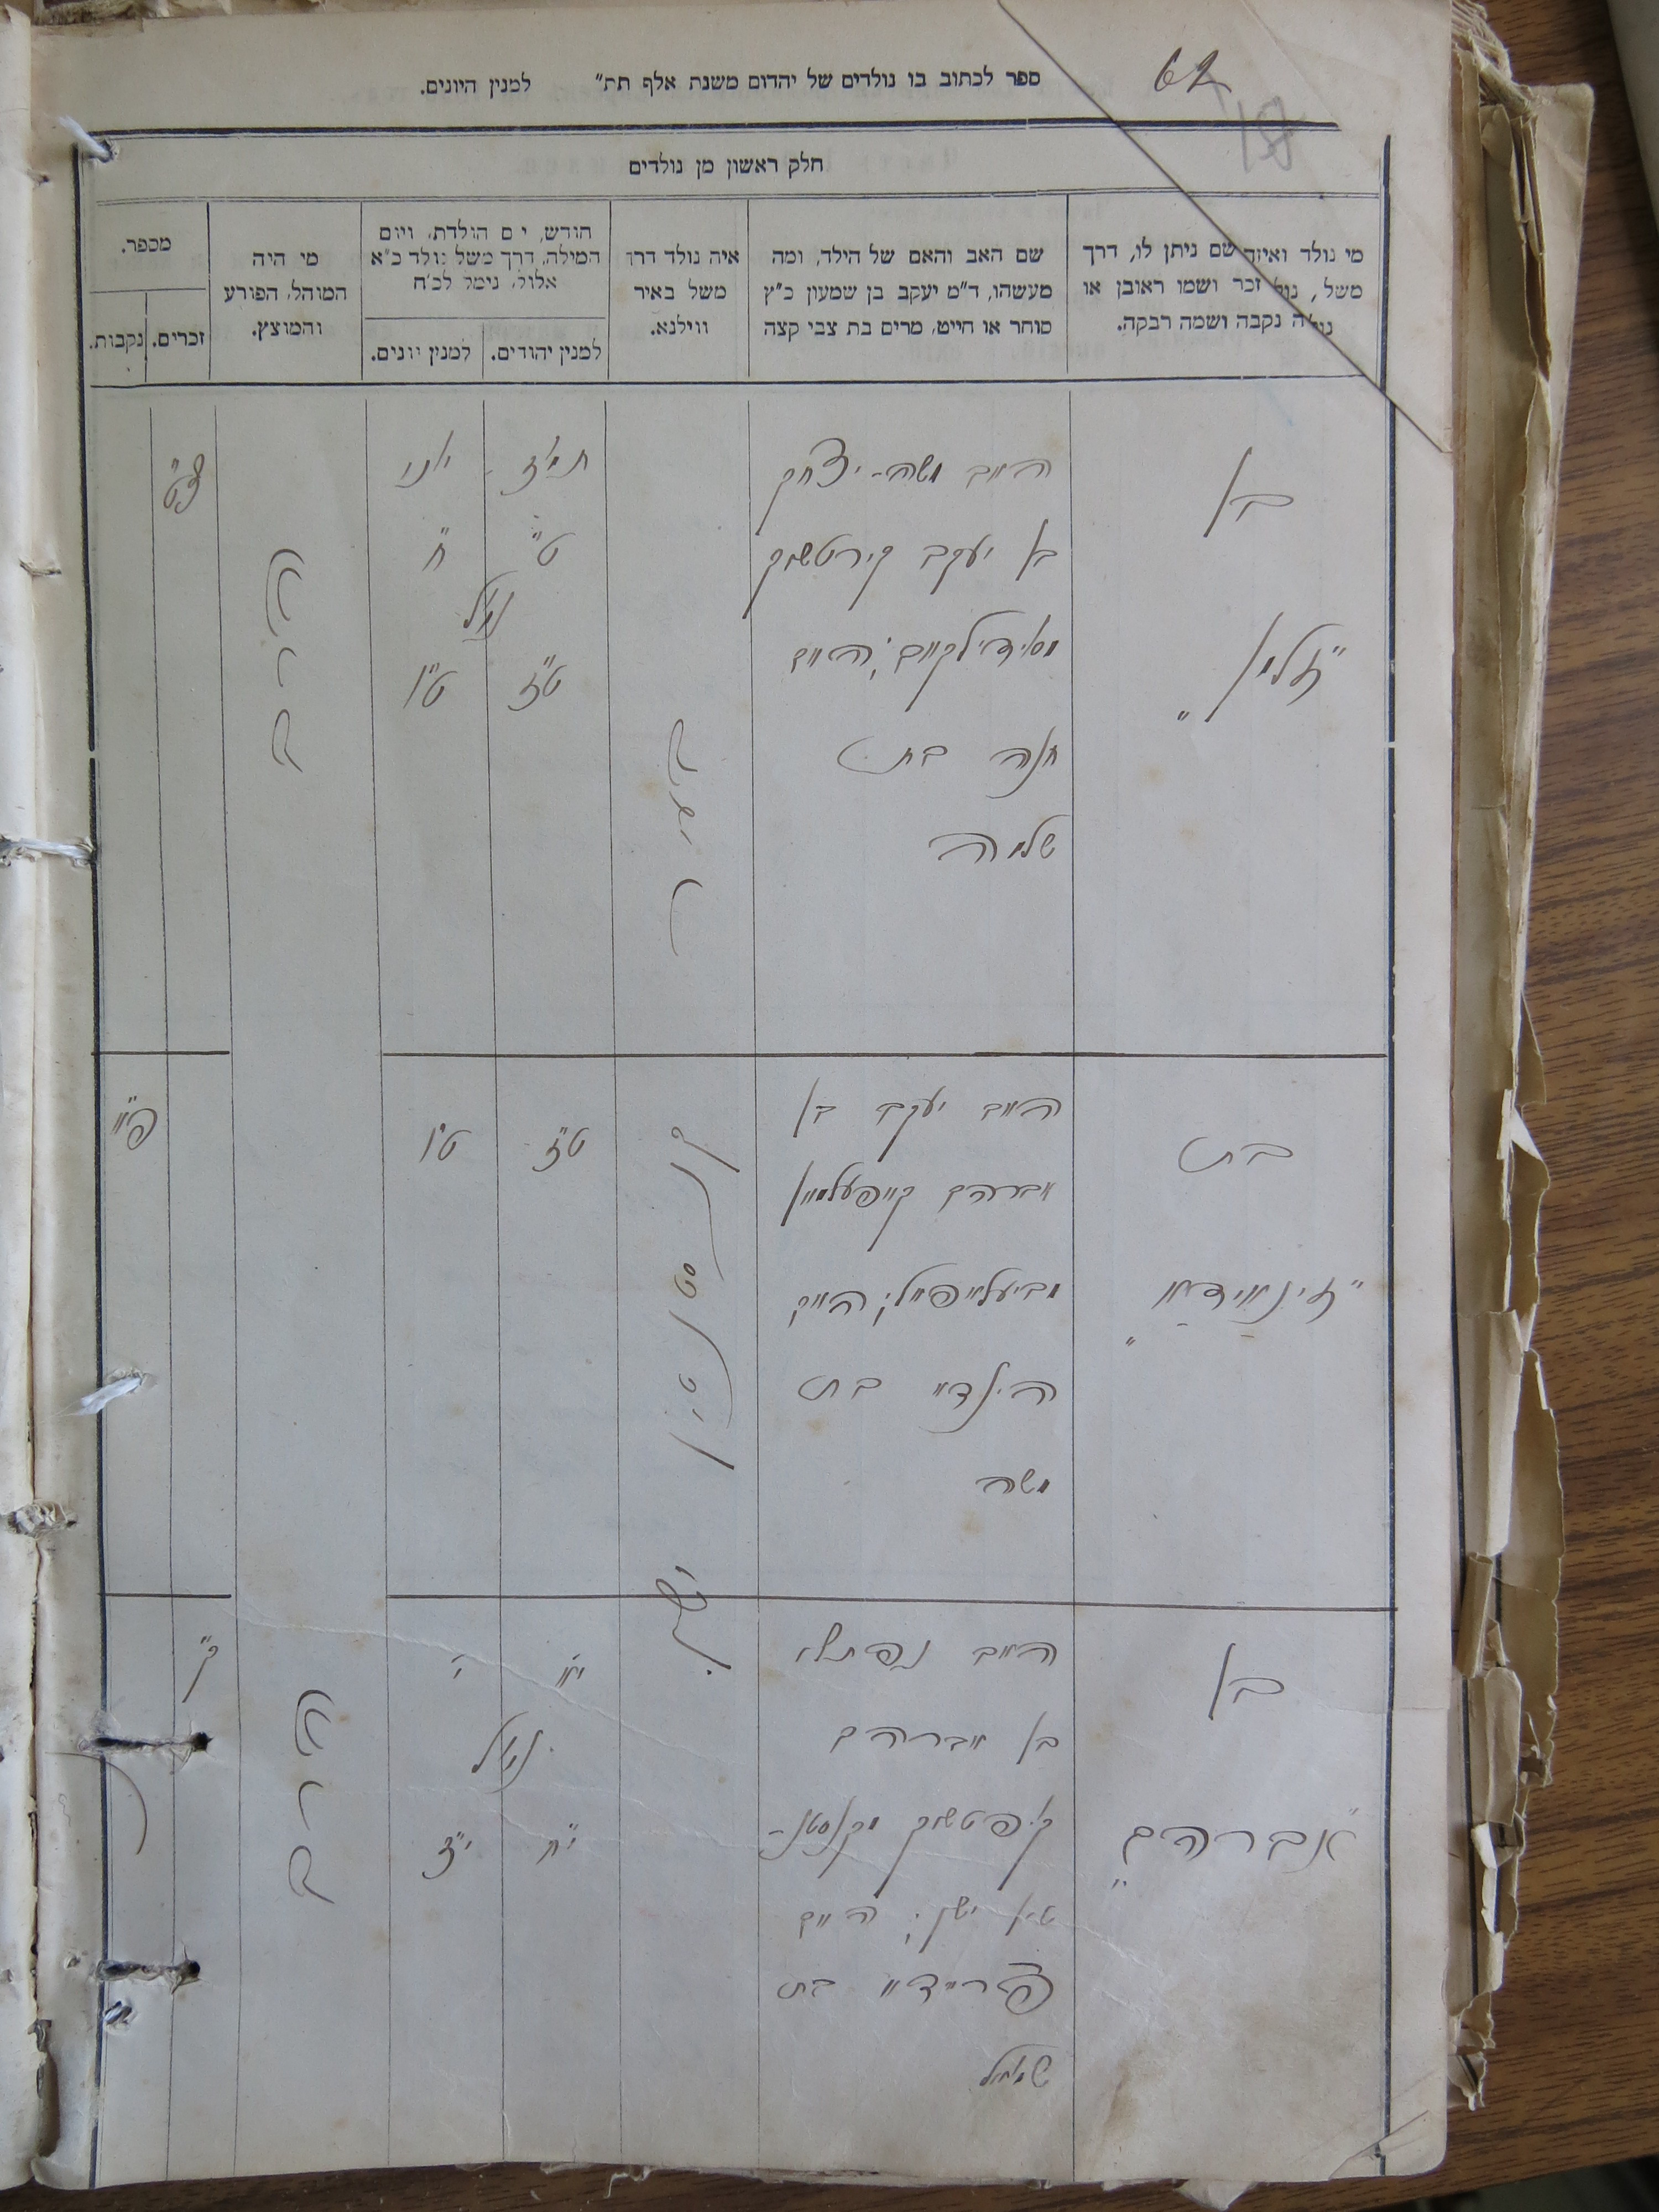 62
ספר לכתוב בו נולדים של יהדום משנת אלף תת״ למנין היונים.
חלק ראשון מן נולדים
מי נולד ואיזה שם ניתן לו, דרך
משל, נול זכר ושמו ראובן או
נולה נקבה ושמה רבקה.
שם האב והאם של הילד, ומה
מעשהו, ד״מ יעקב בן שמעון כ״ץ
סוחר או חייט, מרים בת צבי קצה
איה נולד דרך
משל באיר
ווילנא.
חודש, י ם הולדת, ויום
המילה, דרך משל נולד כ״א
אלול, נימל לכ״ח
למנין יהודים.
למנין יונים.
מי היה
המוהל, הפורע
והמוצץ.
מספר.
זכרים.
נקבות.
בן
״זלמן״
האב משה-יצחק
בן יעקב
האם
חנה בת
שלמה
תמוז
ט״
נימול
ט״ז
יוני
ח״
ט״ו
צ״ט
בת
״זינאידא״
האב יעקב בן
אברהם קאפעלמאן
האם
הינדא בת
משה
קנסטנטין
ישן.
ט״ז
ט״ו
פ״א
בן
״אברהם״
האב נפתלי
בן אברהם
וקנסטנ-
טין ישן; האם
פריידא בת
שמואל
י״א
נימול
י״ח
י׳
י״ז
ק״